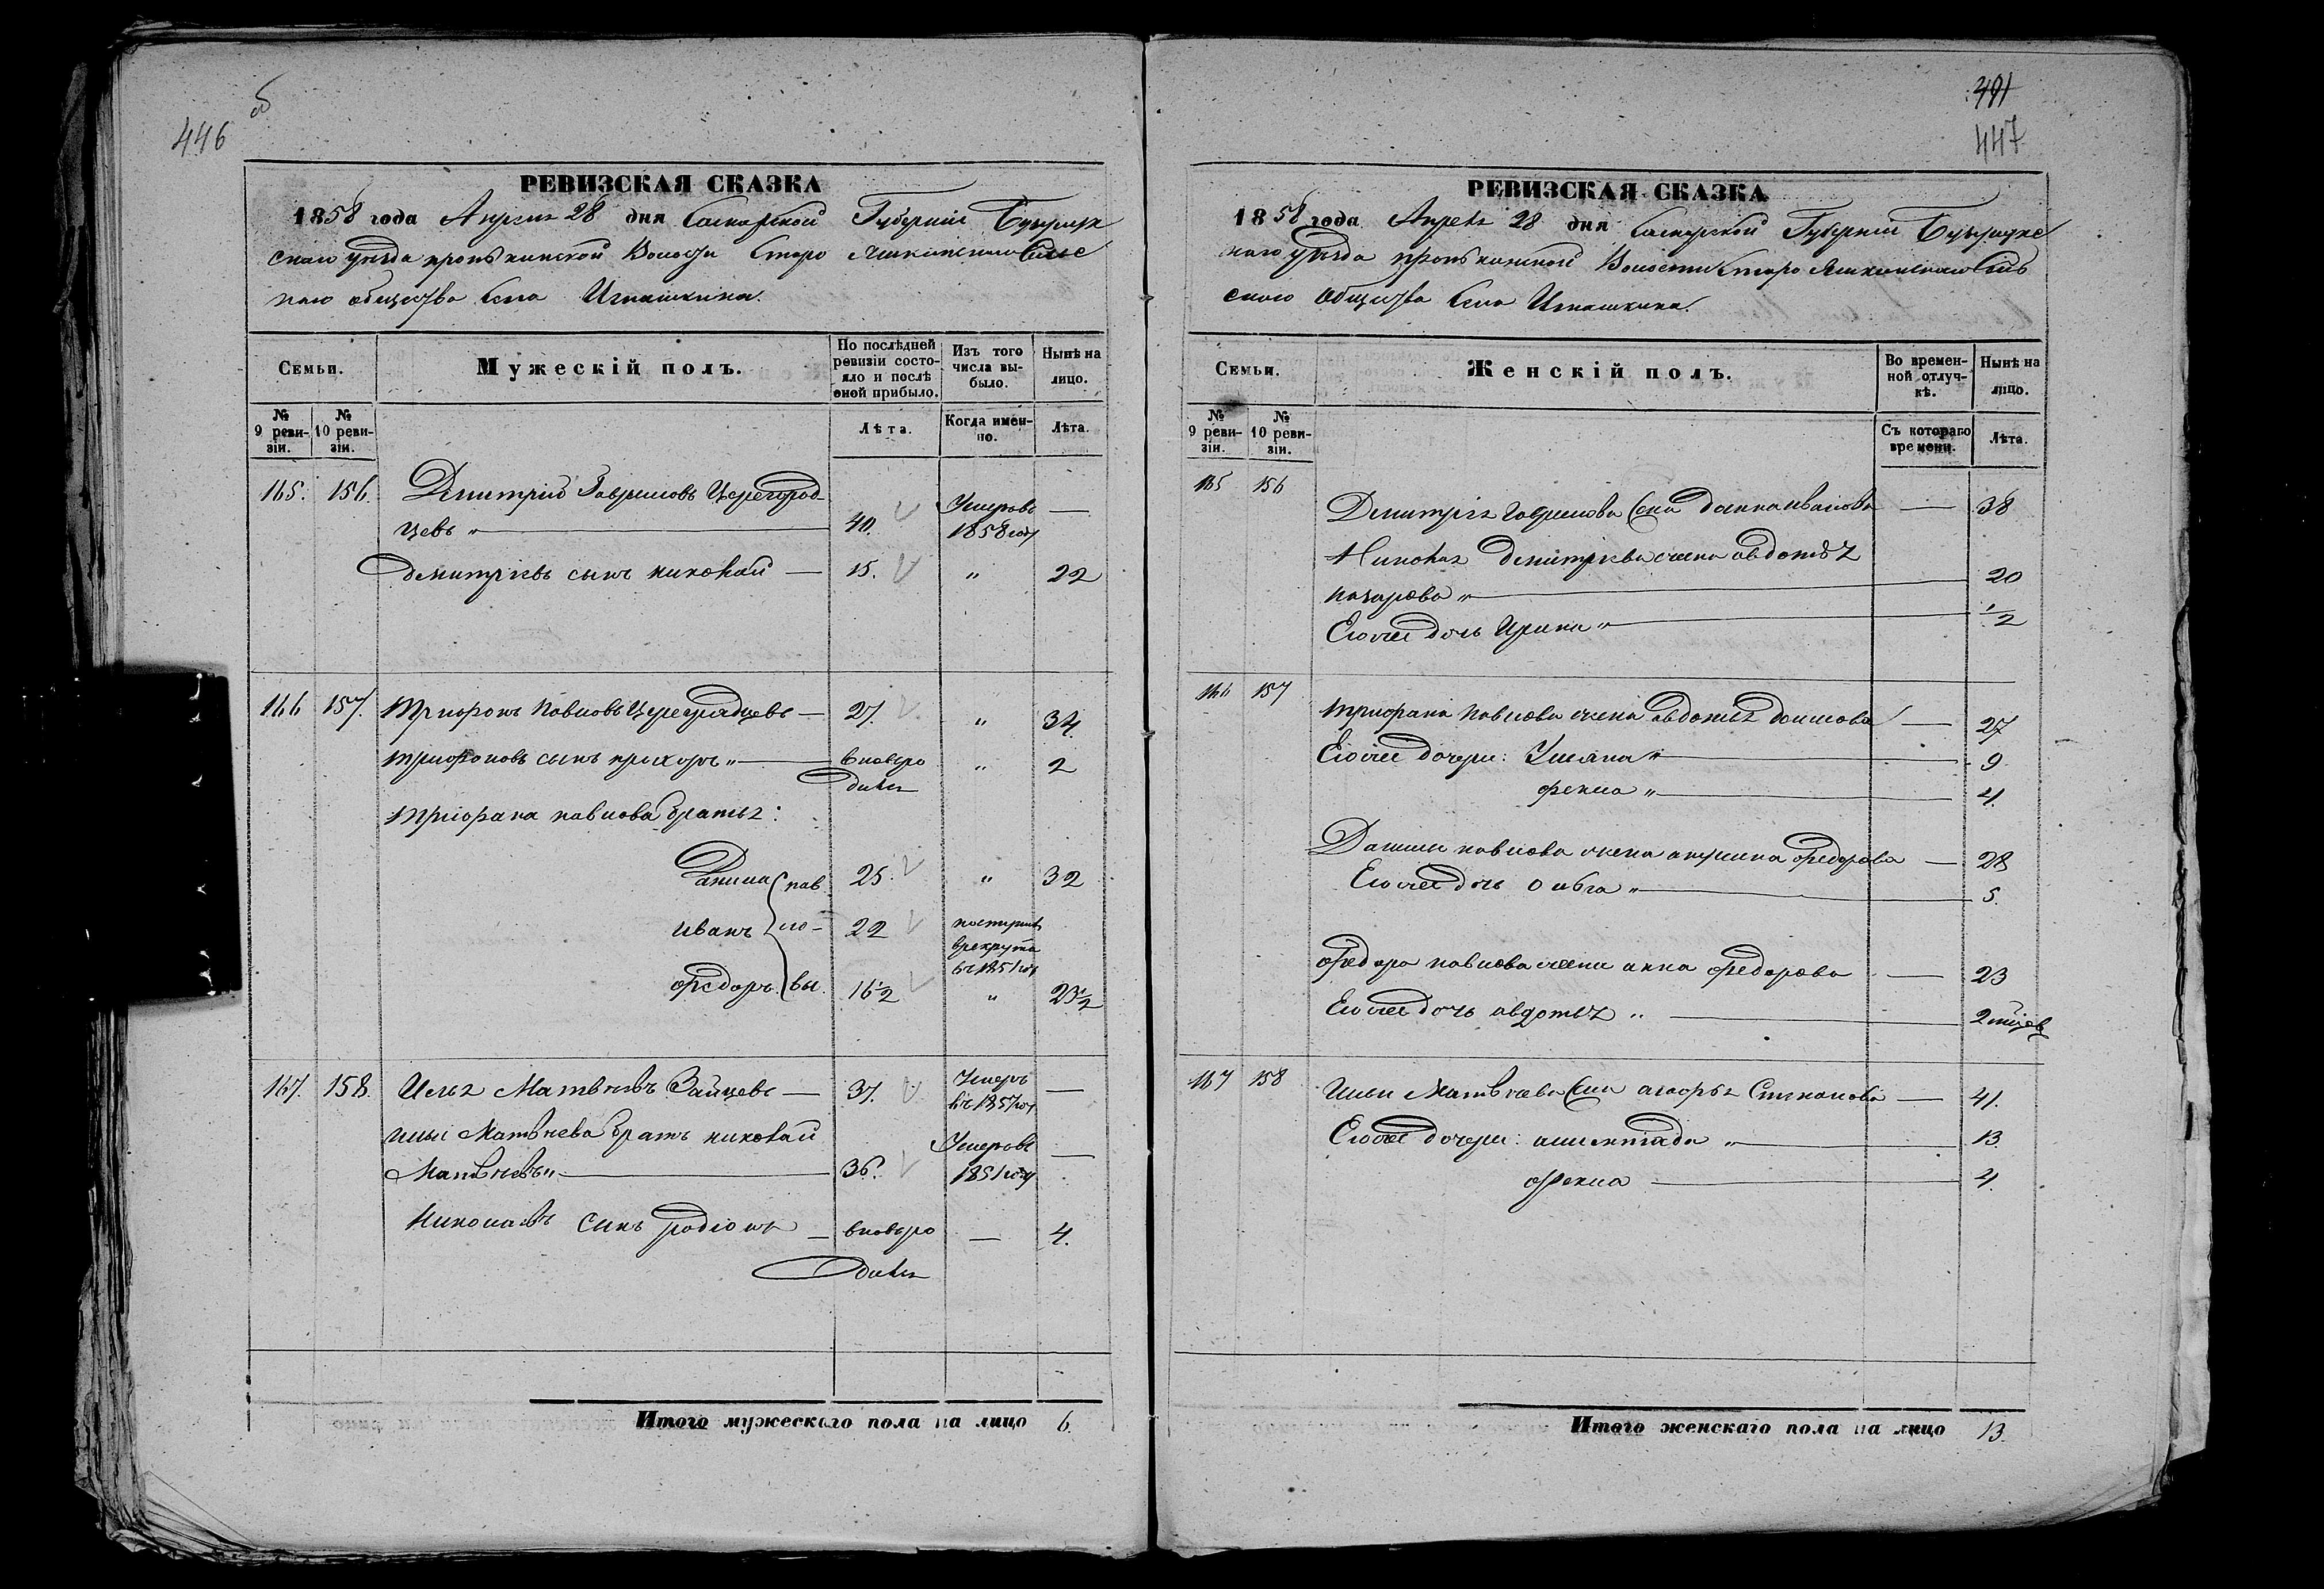 446
об
РЕВИЗСКАЯ СКАЗКА
1858 года Апреля 28 дня Самарской Губерніи Бугурусл
скаго уезда пронькинской Волости Старо Яшкинского Сельс
каго общества села Игнашкина.
Семьи.
Мужескій полъ.
По послѣдней ревизіи состояло и послѣ оной прибыло.
Изъ того числа выбыло.
Нынѣ на лицо.
№ 9 ревизіи.
№ 10 ревизіи.
Лѣта.
Когда именно.
Лѣта.
165. 156. Дмитрий Гавриловъ Цареград
цевъ „ — 40. Умеръ въ 1858 году —
Дмитріевъ сынъ николай — 15. „ 22
166 157. Трифонъ Павловъ Цареградцевъ — 27. „ 34
Трифоновъ сынъ прохоръ „ — вновьро
дился „ 2
Трифона павлова братья:
Данила пав 25. „ 32
иванъ ло- 22 поступилъ
в рекруты
въ 1851 год
федоръ. вы. 16 1/2 „ 23 1/2
167. 158. Илья Матвѣевъ Зайцевъ — 37. Умеръ
въ 1857 год —
ильи Матвѣева братъ николай
Матвѣевъ „ — 36. Умеръ въ
1851 году —
Николаевъ сынъ родіонъ — вновьро — 4.
дился
Итого мужескаго пола на лицо 6.
391
447
РЕВИЗСКАЯ СКАЗКА
1858 года Апреля 28 дня Самарской Губерніи Бугурусла
наго уѣзда пронькинской Волости Старо Яшкинского Сель
скаго Общества Села Игнашкина.
Семьи.
Женскій полъ.
Во временной отлучкѣ.
Нынѣ на лицо.
№ 9 ревизіи.
№ 10 ревизіи.
Съ котораго времени.
Лѣта.
165 156
Дмитрія Гаврилова жена иванова — 38
Николая Дмитріева жена авдотья
назарова „ — 20
Его же дочь Ирина „ — 1/2
166 157
Трифона Павлова жена авдотья данилова — 27
Его же дочери: Ульяна „ — 9
фекла „ — 4.
Данилы павлова жена акулина федорова — 28
Его же дочь ольга „ — 5.
Федора павлова жена анна федорова — 23
Его же дочь авдотья „ — 2 мѣсяц
167 158
Ильи Матвѣева жена Степанова — 41.
Его же дочери: „ — 13.
фекла — 4
Итого женскаго пола на лицо 13.